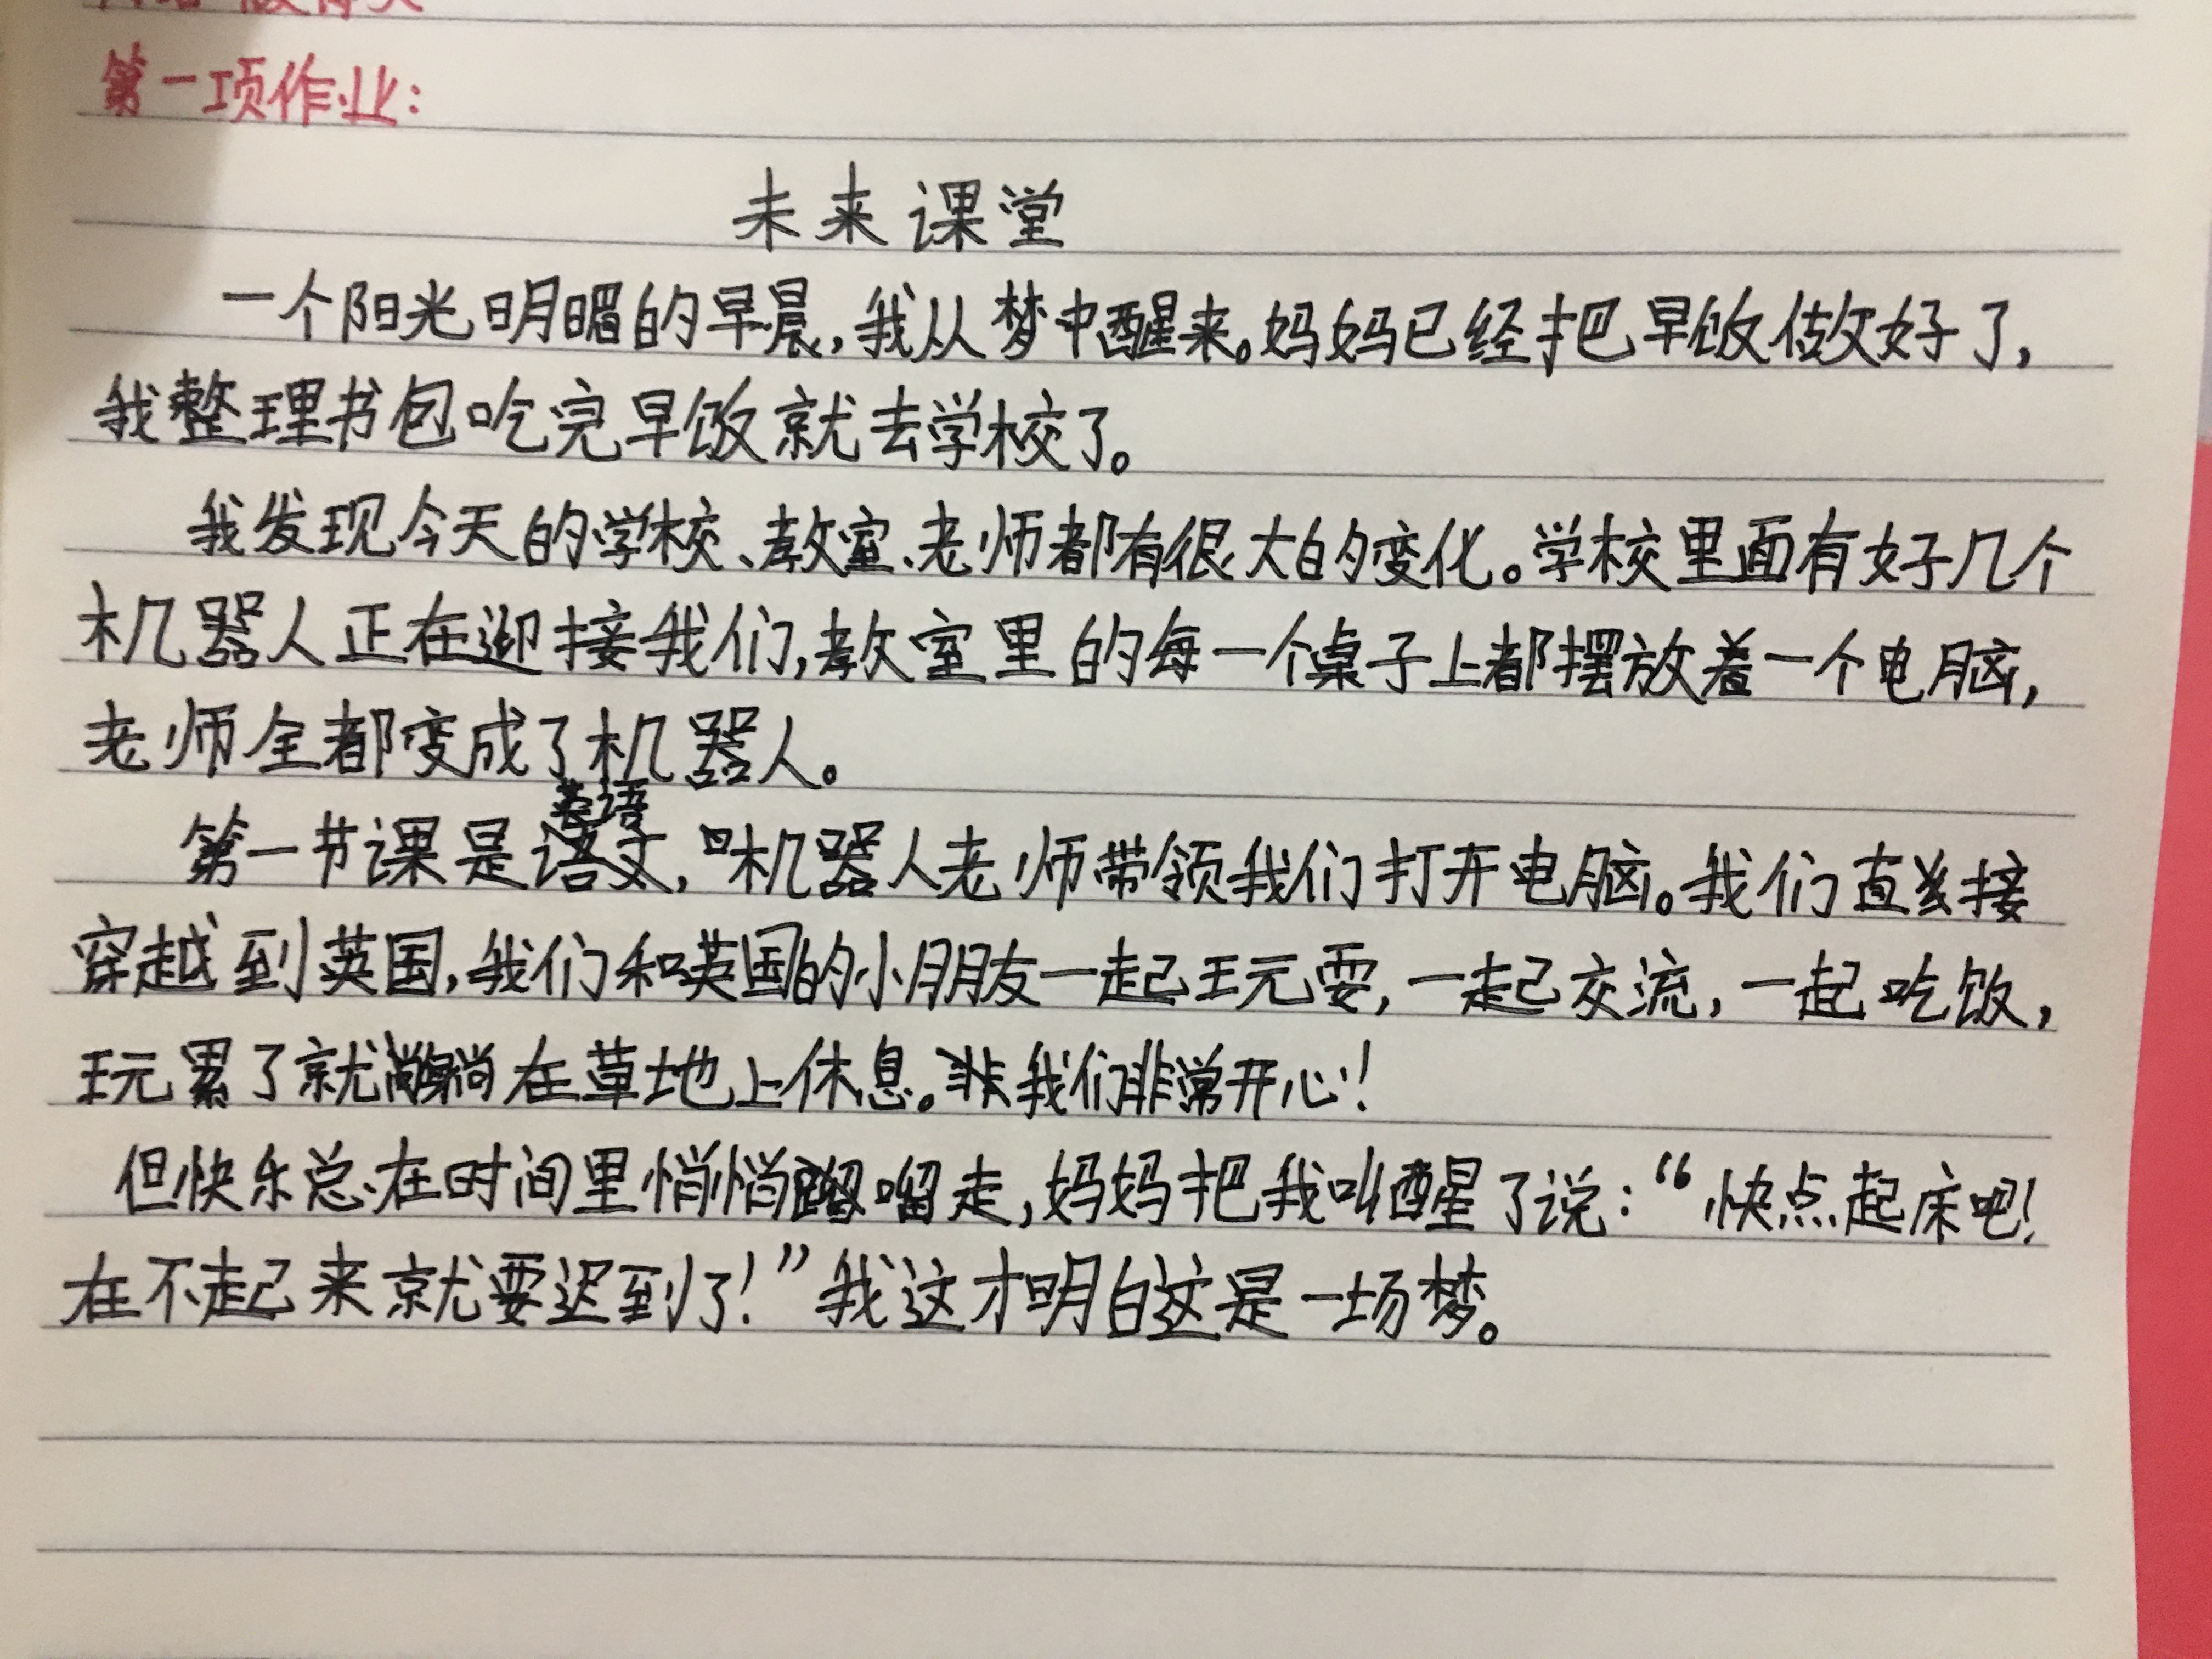 第一项作业：
未来课堂
一个阳光明媚的早晨，我从梦中醒来。妈妈已经把早饭做好了，
我整理书包吃完早饭就去学校了。
我发现今天的学校、教室、老师都有很大的变化。学校里面有好几个
机器人正在迎接我们，教室里的每一个桌子上都摆放着一个电脑，
老师全都变成了机器人。
英语
第一节课是语文，机器人老师带领我们打开电脑。我们直接
穿越到英国，我们和英国的小朋友一起玩耍，一起交流，一起吃饭，
玩累了就躺在草地上休息。我们非常开心！
但快乐总在时间里悄悄溜走，妈妈把我叫醒了说：“快点起床吧！
在不起来就要迟到了！”我这才明白这是一场梦。